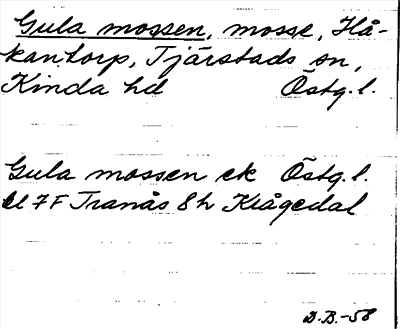 Gula mossen, mosse, Hå-
kantorp, Tjärstads sn,
Kinda hd Östg.l.
Gula mossen ek Östg.l.
bl 7F Tranås 8h Krågedal
B.B.-58